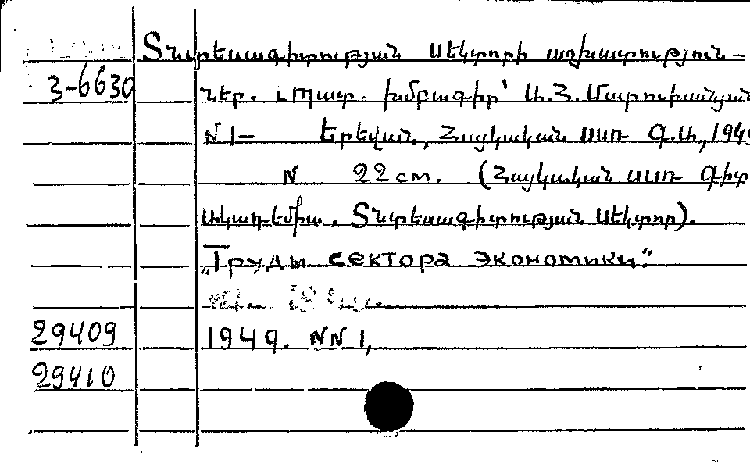 Տնտեսագիտության սեկտորի աշխատություն-
3-6630 ներ. պատ. խմբագիր՝ Ա.Հ.Մարուխանյան
N 1— Երևան, Հայկական ՍՍՌ Գ.Ա,
N 22 cm. (Հայկական ՍՍՌ Գիտ
Ակադեմիա. Տնտեսագիտության սեկտոր).
„Труды сектора экономики"
29409 1949. NN 1,
29410